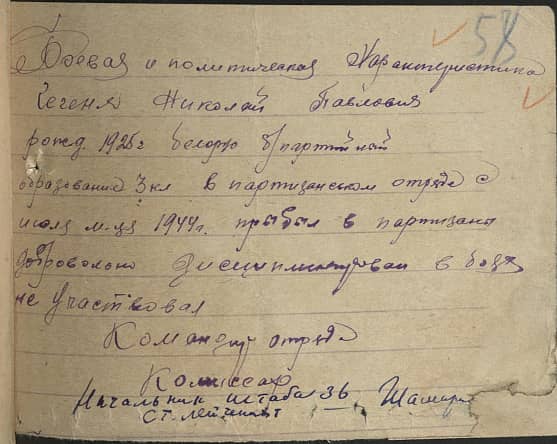 58
Боевая и политическая Характеристика
Чегеня Николай Павлович
рожд. 1925 г белорус б/партийный
образование 3 кл в партизанском отряде с
июля м-ца 1944 г. прибыл в партизаны
добровольно Дисциплинирован в боях
не Участвовал
Командир отряда
Комиссар
Начальник штаба
ст. лейтенант